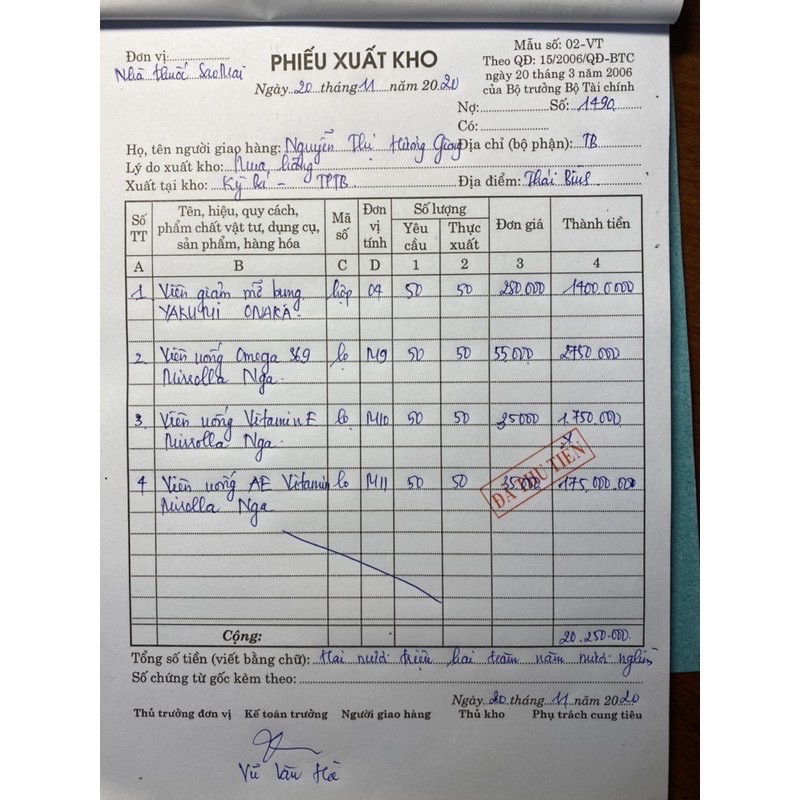 Đơn vị:
Nhà thuốc Sao Mai
PHIẾU XUẤT KHO
Ngày 20 tháng 11 năm 2020
Mẫu số: 02-VT
Theo QĐ: 15/2006/QĐ-BTC
ngày 20 tháng 3 năm 2006
của Bộ trưởng Bộ Tài chính
Nợ: Số: 1490
Có:
Họ, tên người giao hàng: Nguyễn Thị Hương Giang Địa chỉ (bộ phận): TB
Lý do xuất kho: Mua hàng
Xuất tại kho: Kỳ Bá - TPTB Địa điểm: Thái Bình
Số TT Tên, hiệu, quy cách, phẩm chất vật tư, dụng cụ, sản phẩm, hàng hóa Mã số Đơn vị tính Số lượng Yêu cầu Thực xuất Đơn giá Thành tiền
A B C D 1 2 3 4
1 Viên giảm mỡ bụng hộp 04 50 50 280.000 1400.0000
YAKUJI ONAKA.
2 Viên uống Omega 369 lọ M9 50 50 55,000 2750.000
Mirrolla Nga.
3 Viên uống Vitamin E lọ M10 50 50 35000 1.750.000
Mirrolla Nga.
4 Viên uống AE Vitamin lọ M11 50 50 35000 175,000.000
Mirolla Nga
ĐÃ THU TIỀN
Cộng: 20.250.000.
Tổng số tiền (viết bằng chữ): Hai mươi triệu hai trăm năm mươi nghìn
Số chứng từ gốc kèm theo:
Ngày 20 tháng 11 năm 2020
Thủ trưởng đơn vị Kế toán trưởng Người giao hàng Thủ kho Phụ trách cung tiêu
Vũ Văn Hà